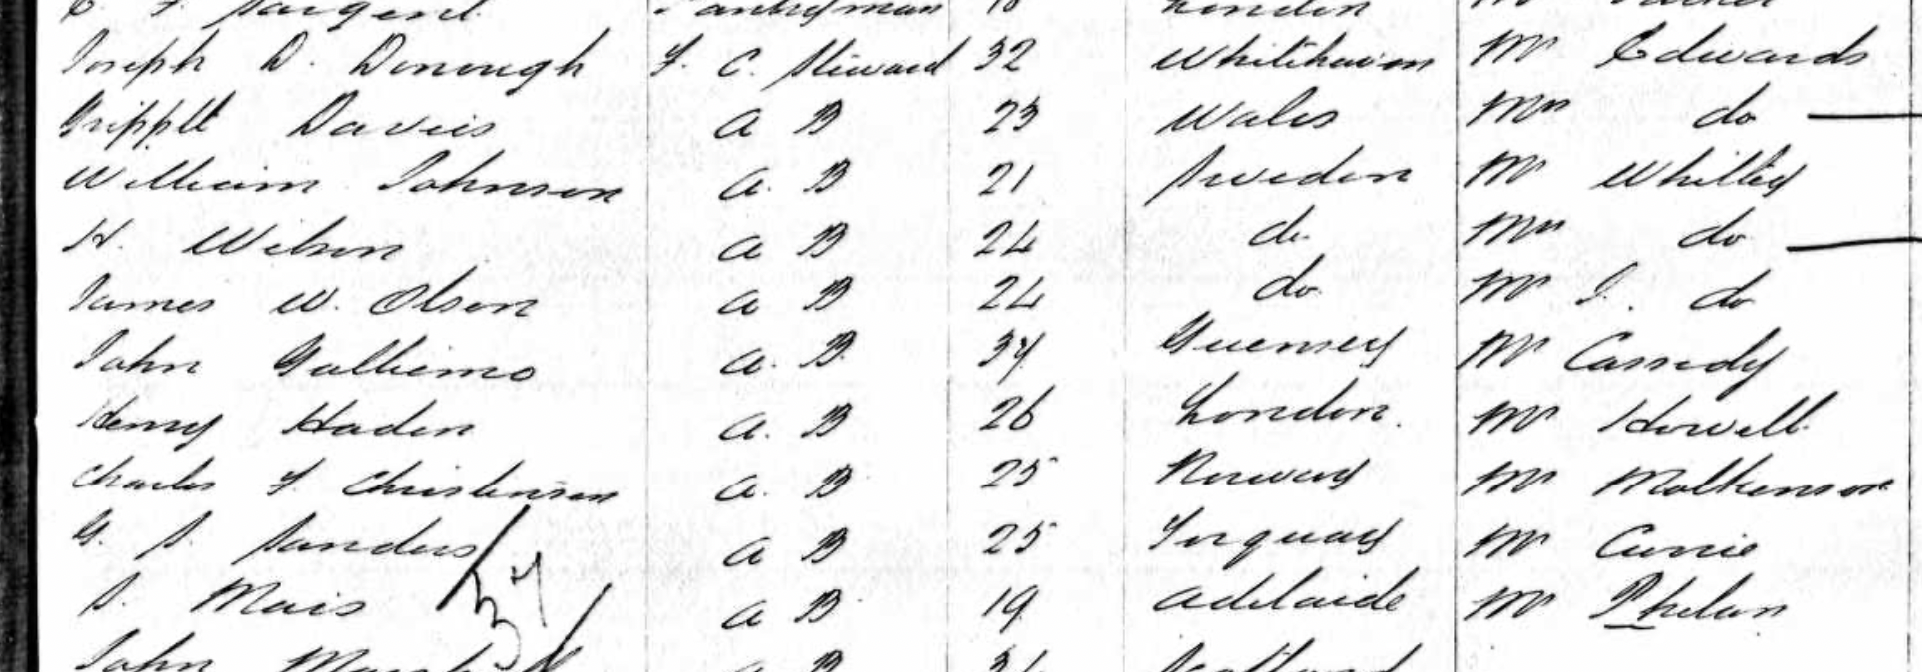 Pantryman 18 London Mr
Joseph D. Donough F. C. Steward 32 Whitehaven Mr Edwards
Davies A B 23 Wales Mrs do
William Johnson A. B 21 Sweden Mr Whilley
H. Wilson A B 24 do Mrs do
James W. Olson A B 24 do Mr J. do
John Galliemo A. B. 34 Guensey Mr Cassedy
Henry Haden A. B 26 London. Mr Howell
Charles F. Christensen A. B 25 Norway Mr Malkenson
G. S. Sanders A B 25 Torquay Mr Currie
S. Mais A B 19 Adelaide Mr Phelan
John A B Scotland